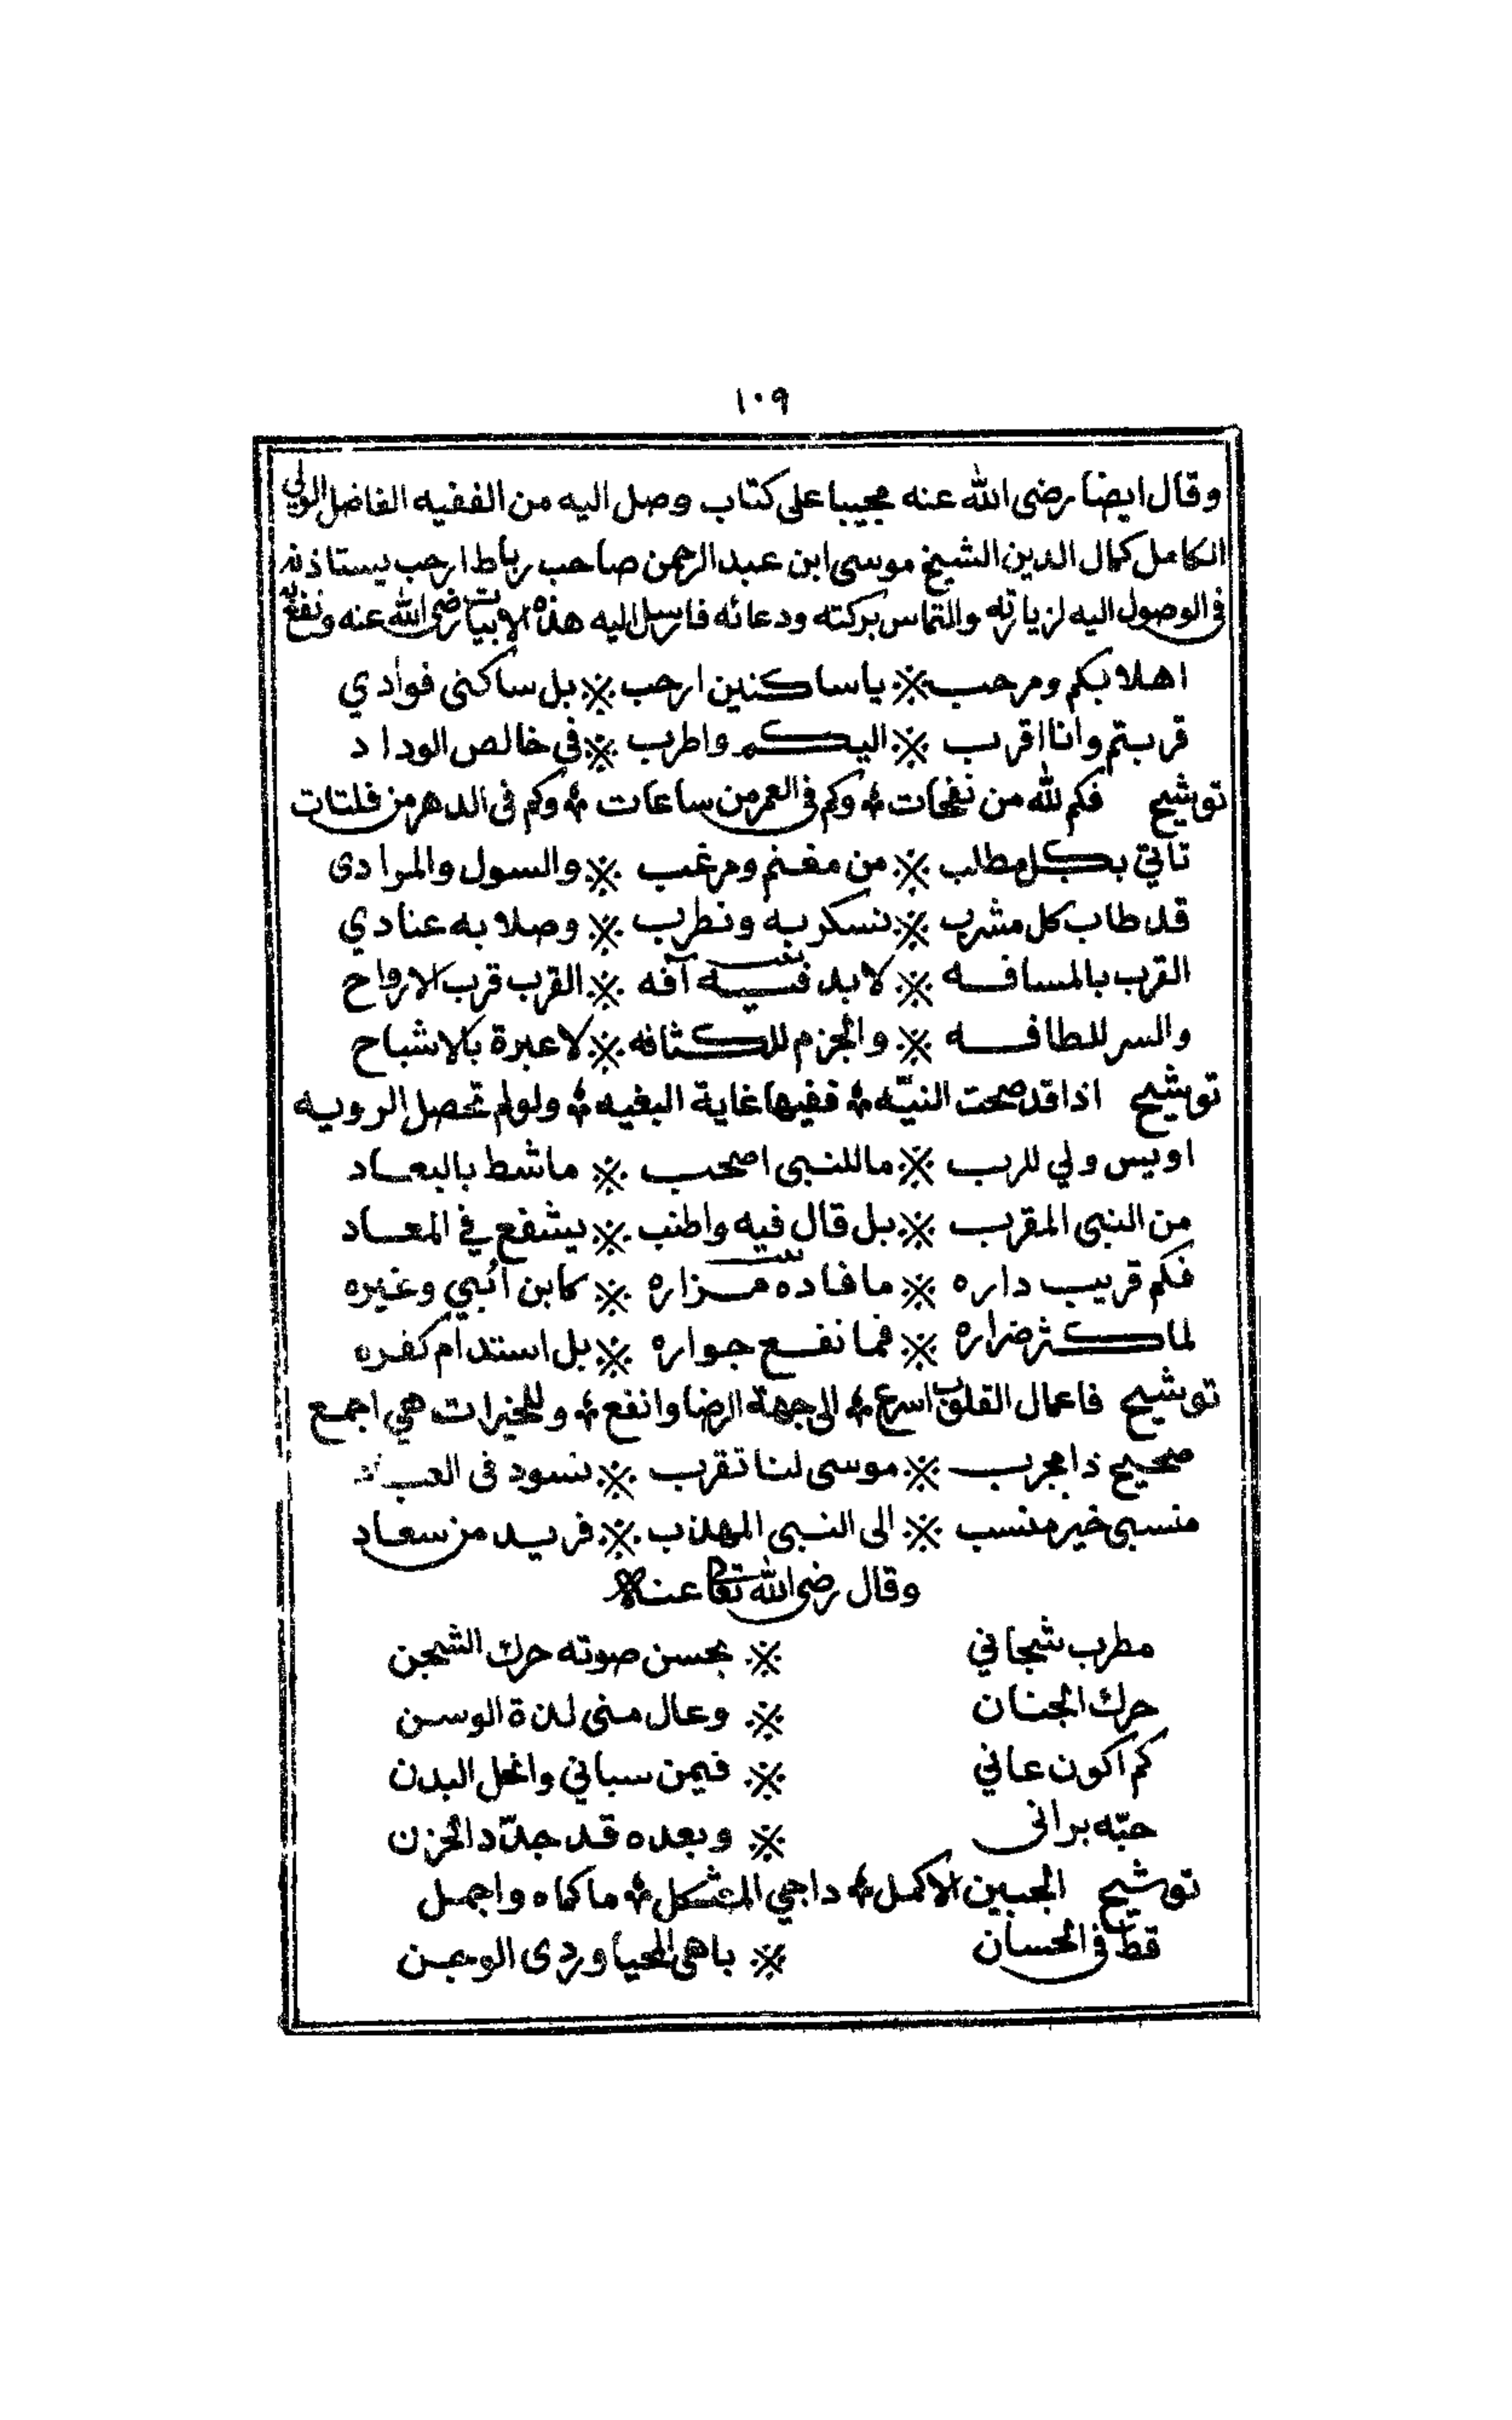 ١٠٩
وقال ايضا رضى الله عنه مجيبا على كتاب وصل اليه من الفقيه الفاضل الولي
الكامل كمال الدين الشيخ موسى ابن عبد الرحمن صاحب رباط ارحب يستاذنه
فى الوصول اليه لزيارته والتماس بركته ودعائه فارسل اليه هذه الابيات رضى الله عنه ونفع به
اهلا بكم ومرحب ※ يا ساكنين ارحب ※ بل ساكنى فوادي
قربتم وانا اقرب ※ اليكم واطرب ※ فى خالص الوداد
توشيح فكم لله من نفحات ؞ وكم فى العمر من ساعات ؞ وكم فى الدهر من فلتات
تاتي بكل مطلب ※ من مغنم ومرغب ※ والسول والمرادى
قد طاب كل مشرب ※ نسكر به ونطرب ※ وصلا به عنادي
بيت
القرب بالمسافه ※ لابد فيه آفه ※ القرب قرب الارواح
والسر للطافه ※ والجزم للكثافه ※ لا عبرة بالاشباح
توشيح اذا قد صحت النيّه ؞ ففيها غاية البغيه ؞ ولو لم تحصل الرويه
اويس ولي للرب ※ ما للنبى اصحب ※ ما شط بالبعاد
من النبى المقرب ※ بل قال فيه واطنب ※ يشفع في المعاد
بيت
فكم قريب داره ※ ما فاده مزاره ※ كابن اُبي وغيره
لما كثر ضراره ※ فما نفع جواره ※ بل استدام كفره
توشيح فاعمال القلوب اسرع ؞ الى جهة الرضا وانفع ؞ وللخيرات هي اجمع
صحيح ذا مجرب ※ موسى لنا تقرب ※ نسود فى العباد
منسبى خير منسب ※ الى النبى المهذب ※ فريد من سعاد
وقال رضى الله تعالى عنه
مطرب شجاني ※ بحسن صوته حرك الشجن
حرك الجنان ※ وعال منى لذة الوسن
كم اكون عاني ※ فيمن سباني وانحل البدن
حبّه برانى ※ وبعده قد جدّد الحزن
توشيح الجبين الاكمل ؞ داجي المشكل ؞ ما كماه واجمل
قط فى الحسان ※ باهى المحيا وردى الوجن